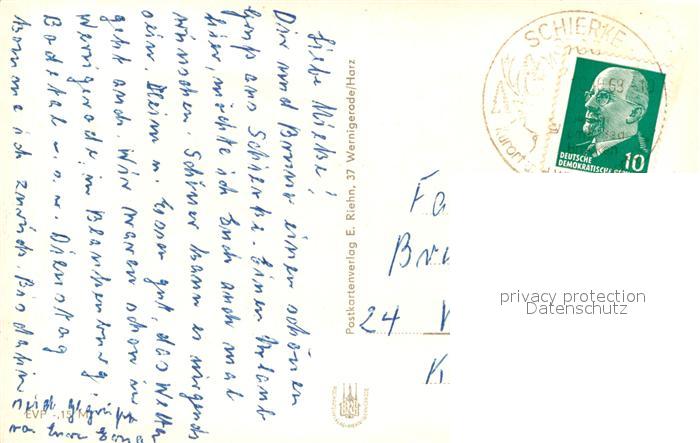 Liebe Mieke!
Dir und Bruno einen schönen
Gruß aus Schierke. Einen Urlaub
hier, möchte ich Euch auch mal
wünschen. Schöner kann es nirgends
sein. Heim u. Essen gut, das Wetter
geht auch. Wir waren schon in
Wernigerode, in Blankenburg,
Bodetal u.s.w. Dienstag
komme ich zurück. Bis dahin
seid gegrüßt
von Eurer
EVP -,15 M
Postkartenverlag E. Riehn, 37 Wernigerode/Harz
SCHIERKE
Kurort
DEUTSCHE
DEMOKRATISCHE
10
Fa
Bru
24 W
privacy protection
Datenschutz